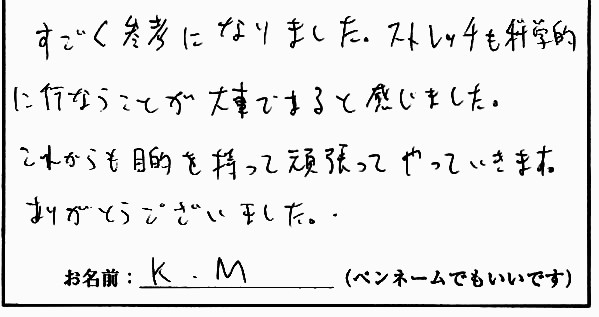 すごく参考になりました。ストレッチも科学的
に行なうことが大事であると感じました。
これからも目的を持って頑張ってやっていきます。
ありがとうございました。
お名前：K．M（ペンネームでもいいです）